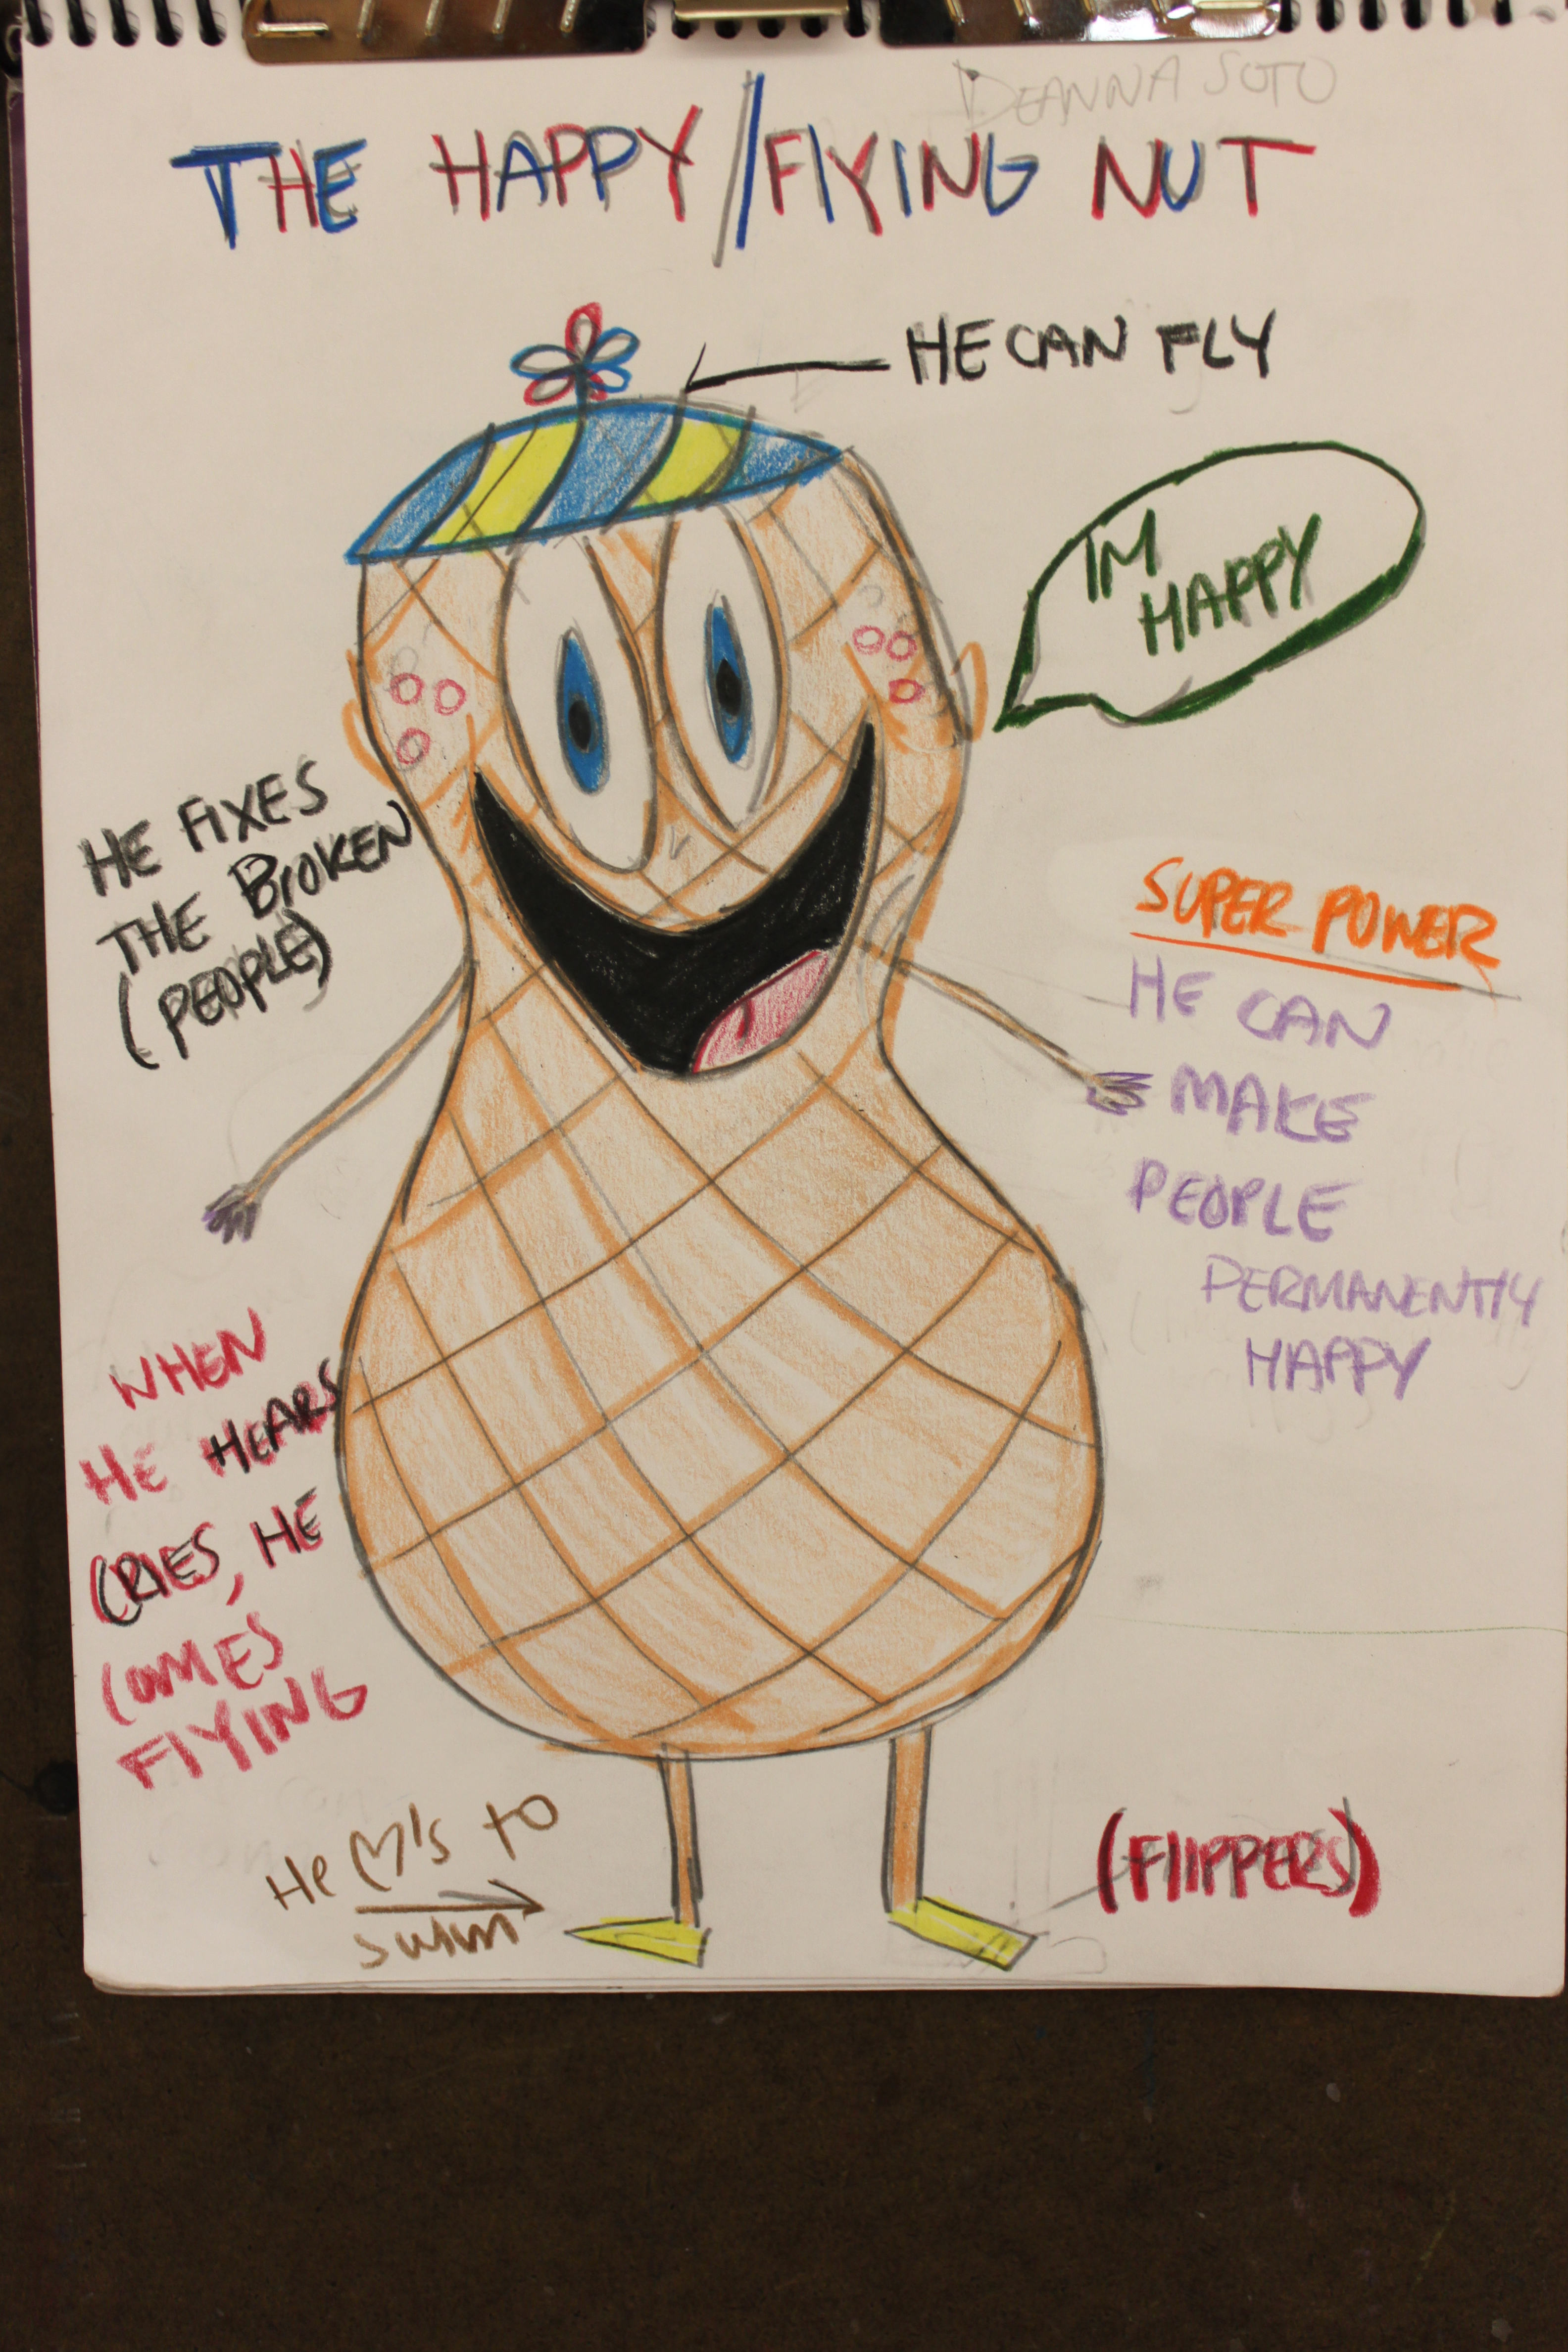 DEANNA SOTO
THE HAPPY/FLYING NUT
HE CAN FLY
I'M
HAPPY
HE FIXES
THE BROKEN
(PEOPLE)
SUPER POWER
HE CAN
MAKE
PEOPLE
PERMANENTLY
HAPPY
WHEN
HE HEARS
CRIES, HE
COMES
FLYING
He ♡'s to
swim
(FLIPPERS)